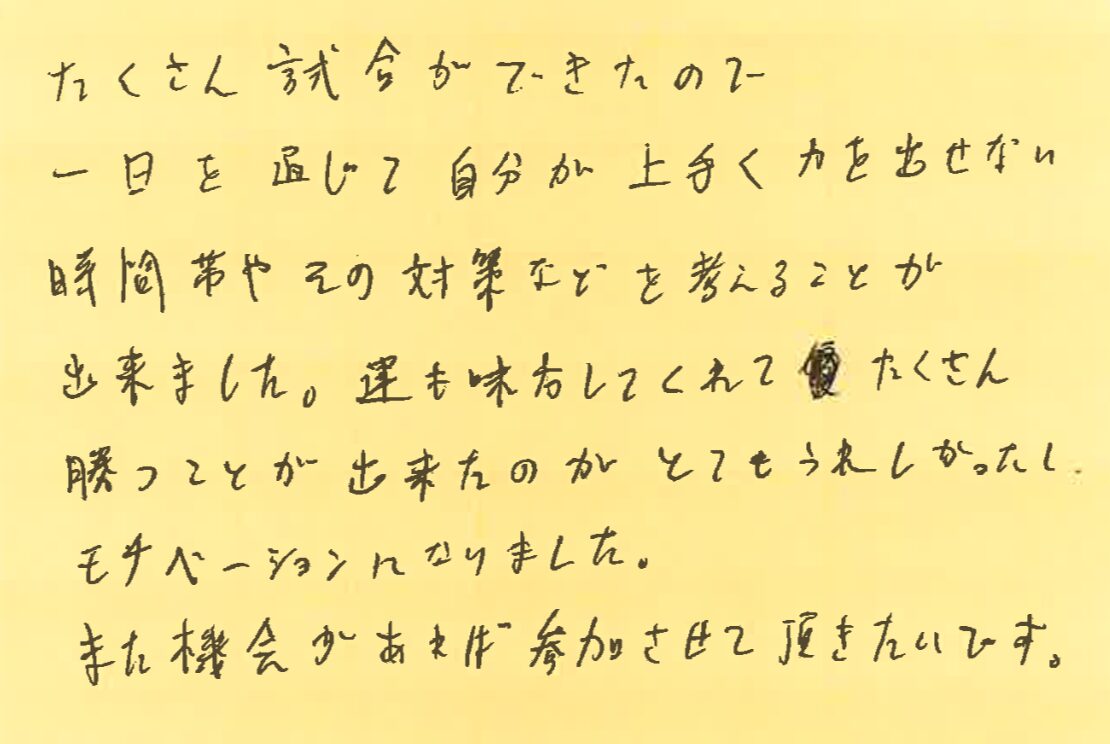 たくさん試合ができたので
一日を通じて自分が上手く力を出せない
時間帯やその対策などを考えることが
出来ました。運も味方してくれてたくさん
勝つことが出来たのがとてもうれしかったし
モチベーションになりました。
また機会があれば参加させて頂きたいです。